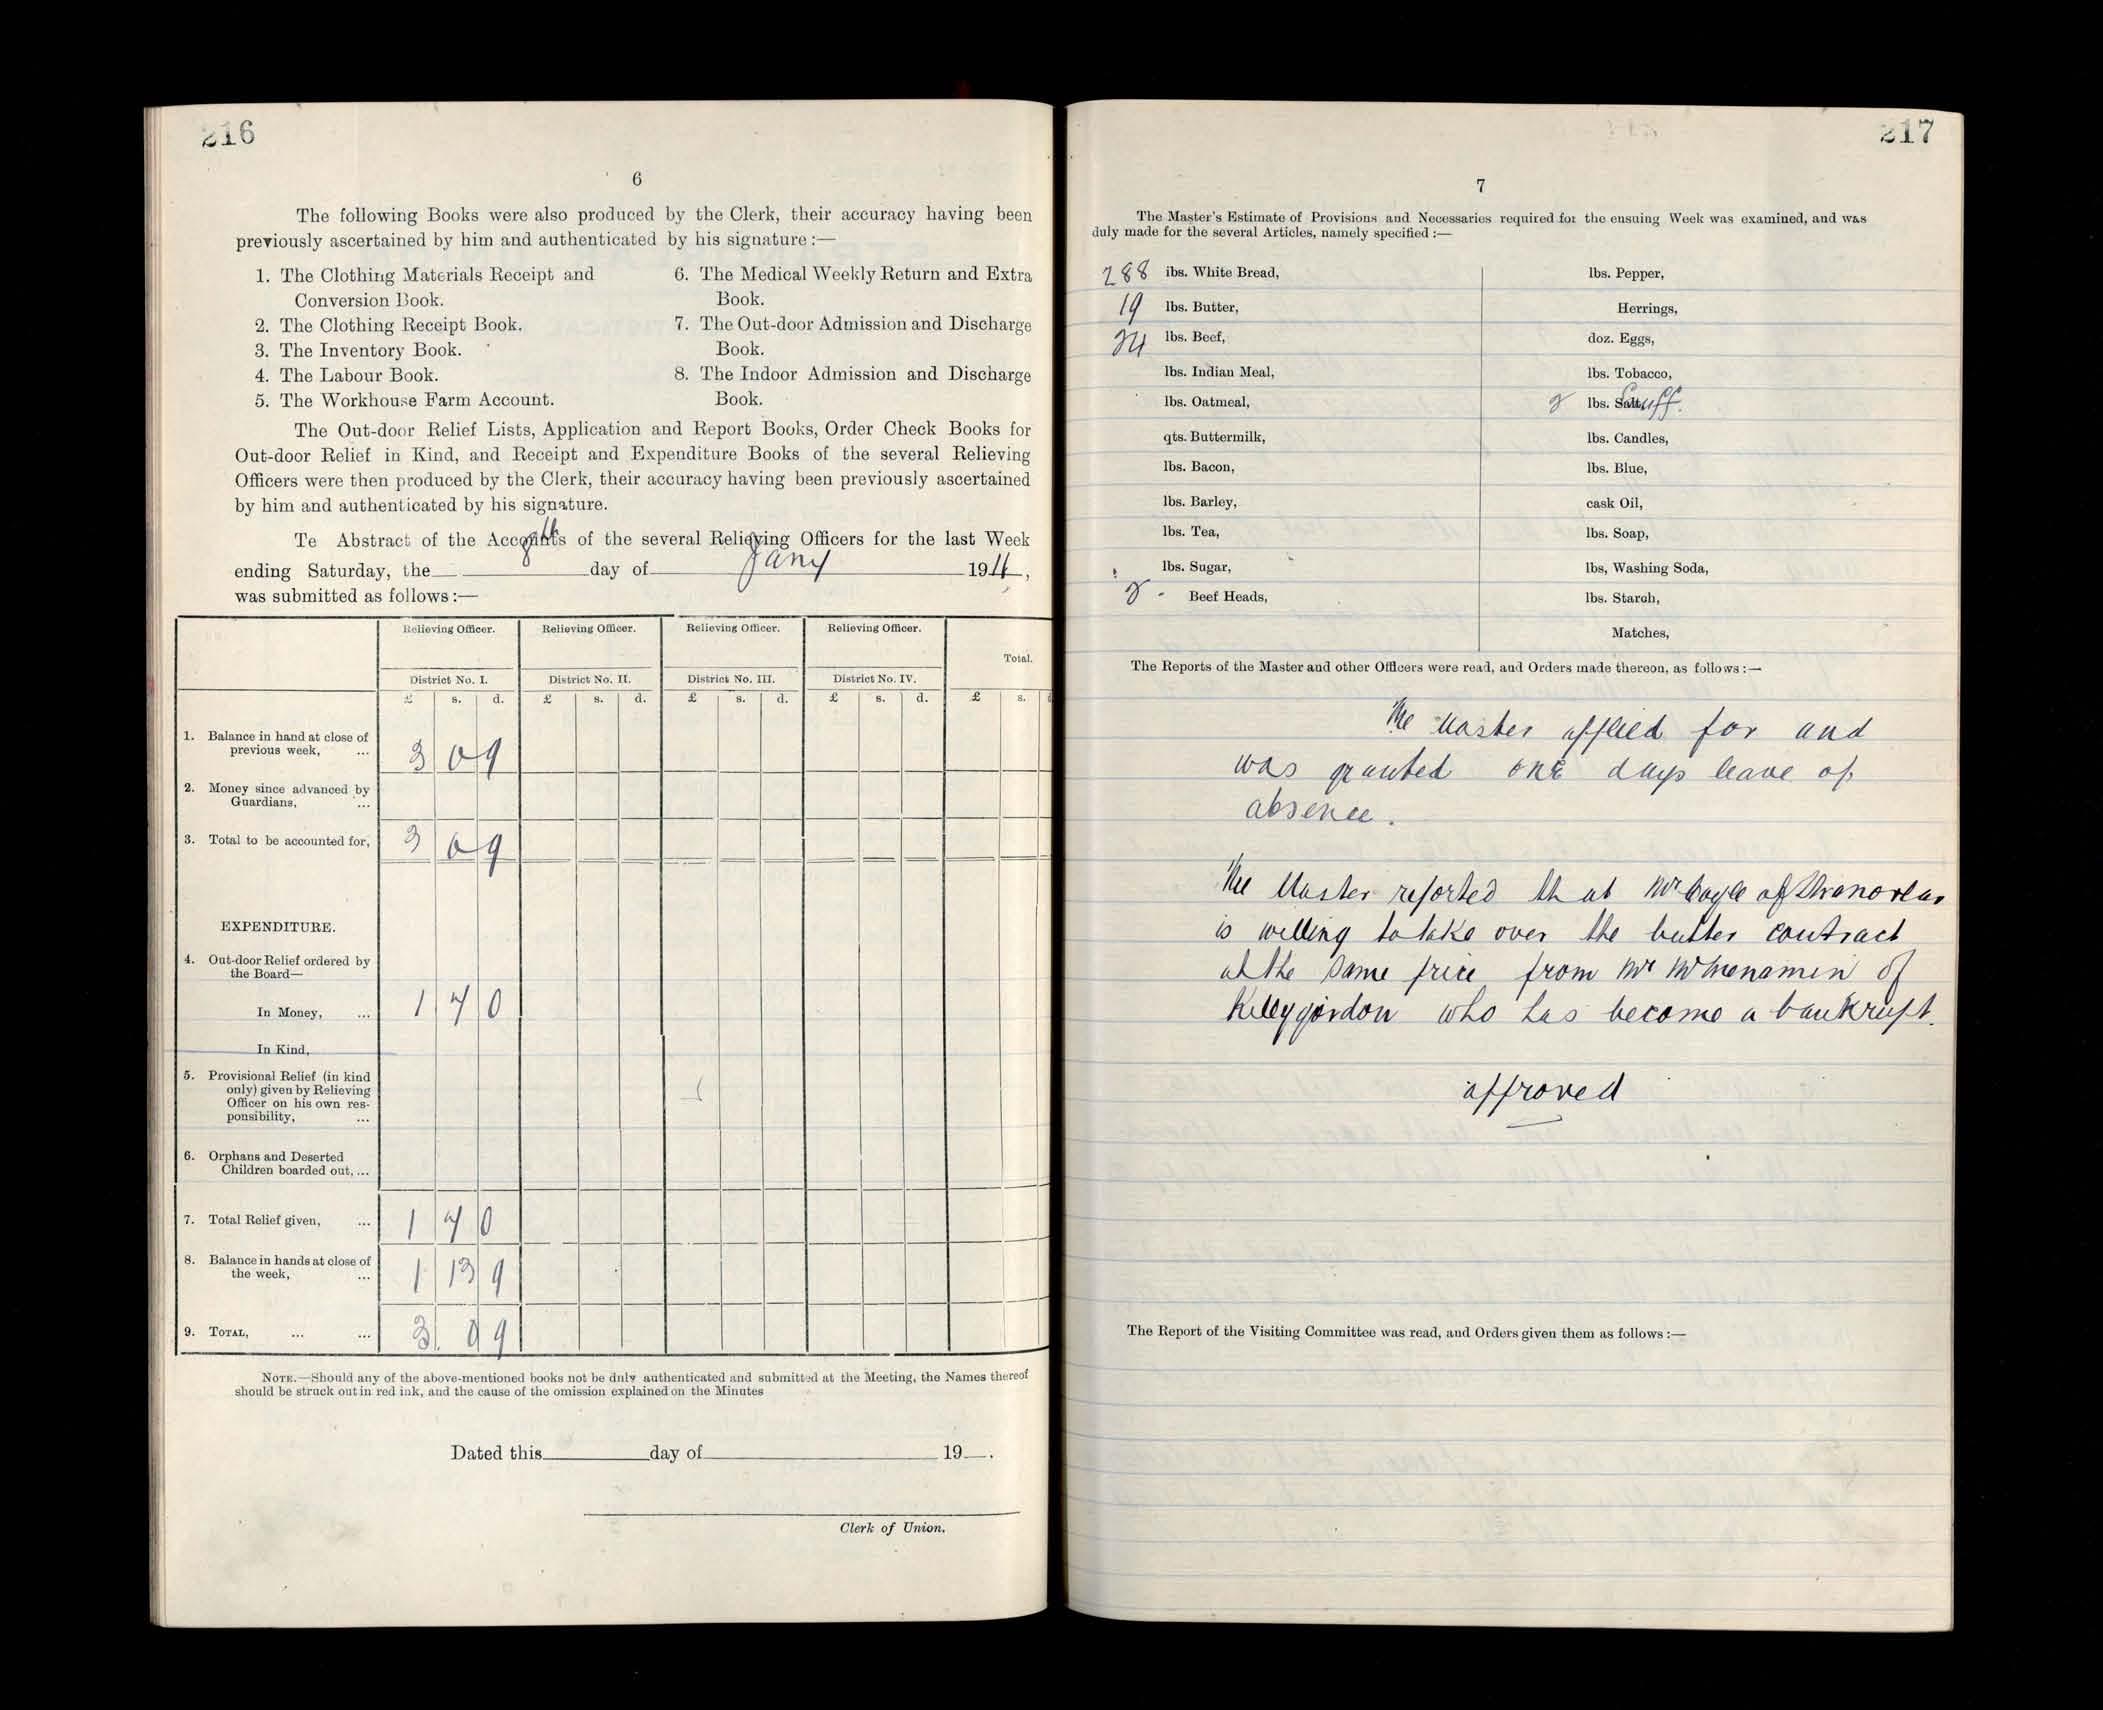 216
6
The following Books were also produced by the Clerk, their accuracy having been
previously ascertained by him and authenticated by his signature :—
1. The Clothing Materials Receipt and
Conversion Book.
2. The Clothing Receipt Book.
3. The Inventory Book.
4. The Labour Book.
5. The Workhouse Farm Account.
6. The Medical Weekly Return and Extra
Book.
7. The Out-door Admission and Discharge
Book.
8. The Indoor Admission and Discharge
Book.
The Out-door Relief Lists, Application and Report Books, Order Check Books for
Out-door Relief in Kind, and Receipt and Expenditure Books of the several Relieving
Officers were then produced by the Clerk, their accuracy having been previously ascertained
by him and authenticated by his signature.
Te Abstract of the Accounts of the several Relieving Officers for the last Week
ending Saturday, the 8th day of Jany 1911,
was submitted as follows :—
Relieving Officer. Relieving Officer. Relieving Officer. Relieving Officer.
Total.
District No. I. District No. II. District No. III. District No. IV.
£ s. d. £ s. d. £ s. d. £ s. d. £ s. d
1. Balance in hand at close of
previous week, ... 3 0 9
2. Money since advanced by
Guardians, ...
3. Total to be accounted for, 3 0 9
EXPENDITURE.
4. Out-door Relief ordered by
the Board—
In Money, ... 1 7 0
In Kind,
5. Provisional Relief (in kind
only) given by Relieving
Officer on his own res-
ponsibility, ...
6. Orphans and Deserted
Children boarded out, ...
7. Total Relief given, ... 1 7 0
8. Balance in hands at close of
the week, ... 1 13 9
9. TOTAL, ... ... 3 0 9
NOTE.—Should any of the above-mentioned books not be duly authenticated and submitted at the Meeting, the Names thereof
should be struck out in red ink, and the cause of the omission explained on the Minutes
Dated this day of 19 .
Clerk of Union.
217
7
The Master's Estimate of Provisions and Necessaries required for the ensuing Week was examined, and was
duly made for the several Articles, namely specified :—
288 lbs. White Bread,
19 lbs. Butter,
24 lbs. Beef,
lbs. Indian Meal,
lbs. Oatmeal,
qts. Buttermilk,
lbs. Bacon,
lbs. Barley,
lbs. Tea,
lbs. Sugar,
2 Beef Heads,
lbs. Pepper,
Herrings,
doz. Eggs,
lbs. Tobacco,
2 lbs. Salt, Snuff.
lbs. Candles,
lbs. Blue,
cask Oil,
lbs. Soap,
lbs, Washing Soda,
lbs. Starch,
Matches,
The Reports of the Master and other Officers were read, and Orders made thereon, as follows :—
The Master applied for and
was granted one days leave of
absence.
The Master reported that Mr Coyle of Stranorlar
is willing to take over the butter contract
at the same price from Mr McMenamin of
Killygordon who has become a bankrupt.
approved
The Report of the Visiting Committee was read, and Orders given them as follows :—